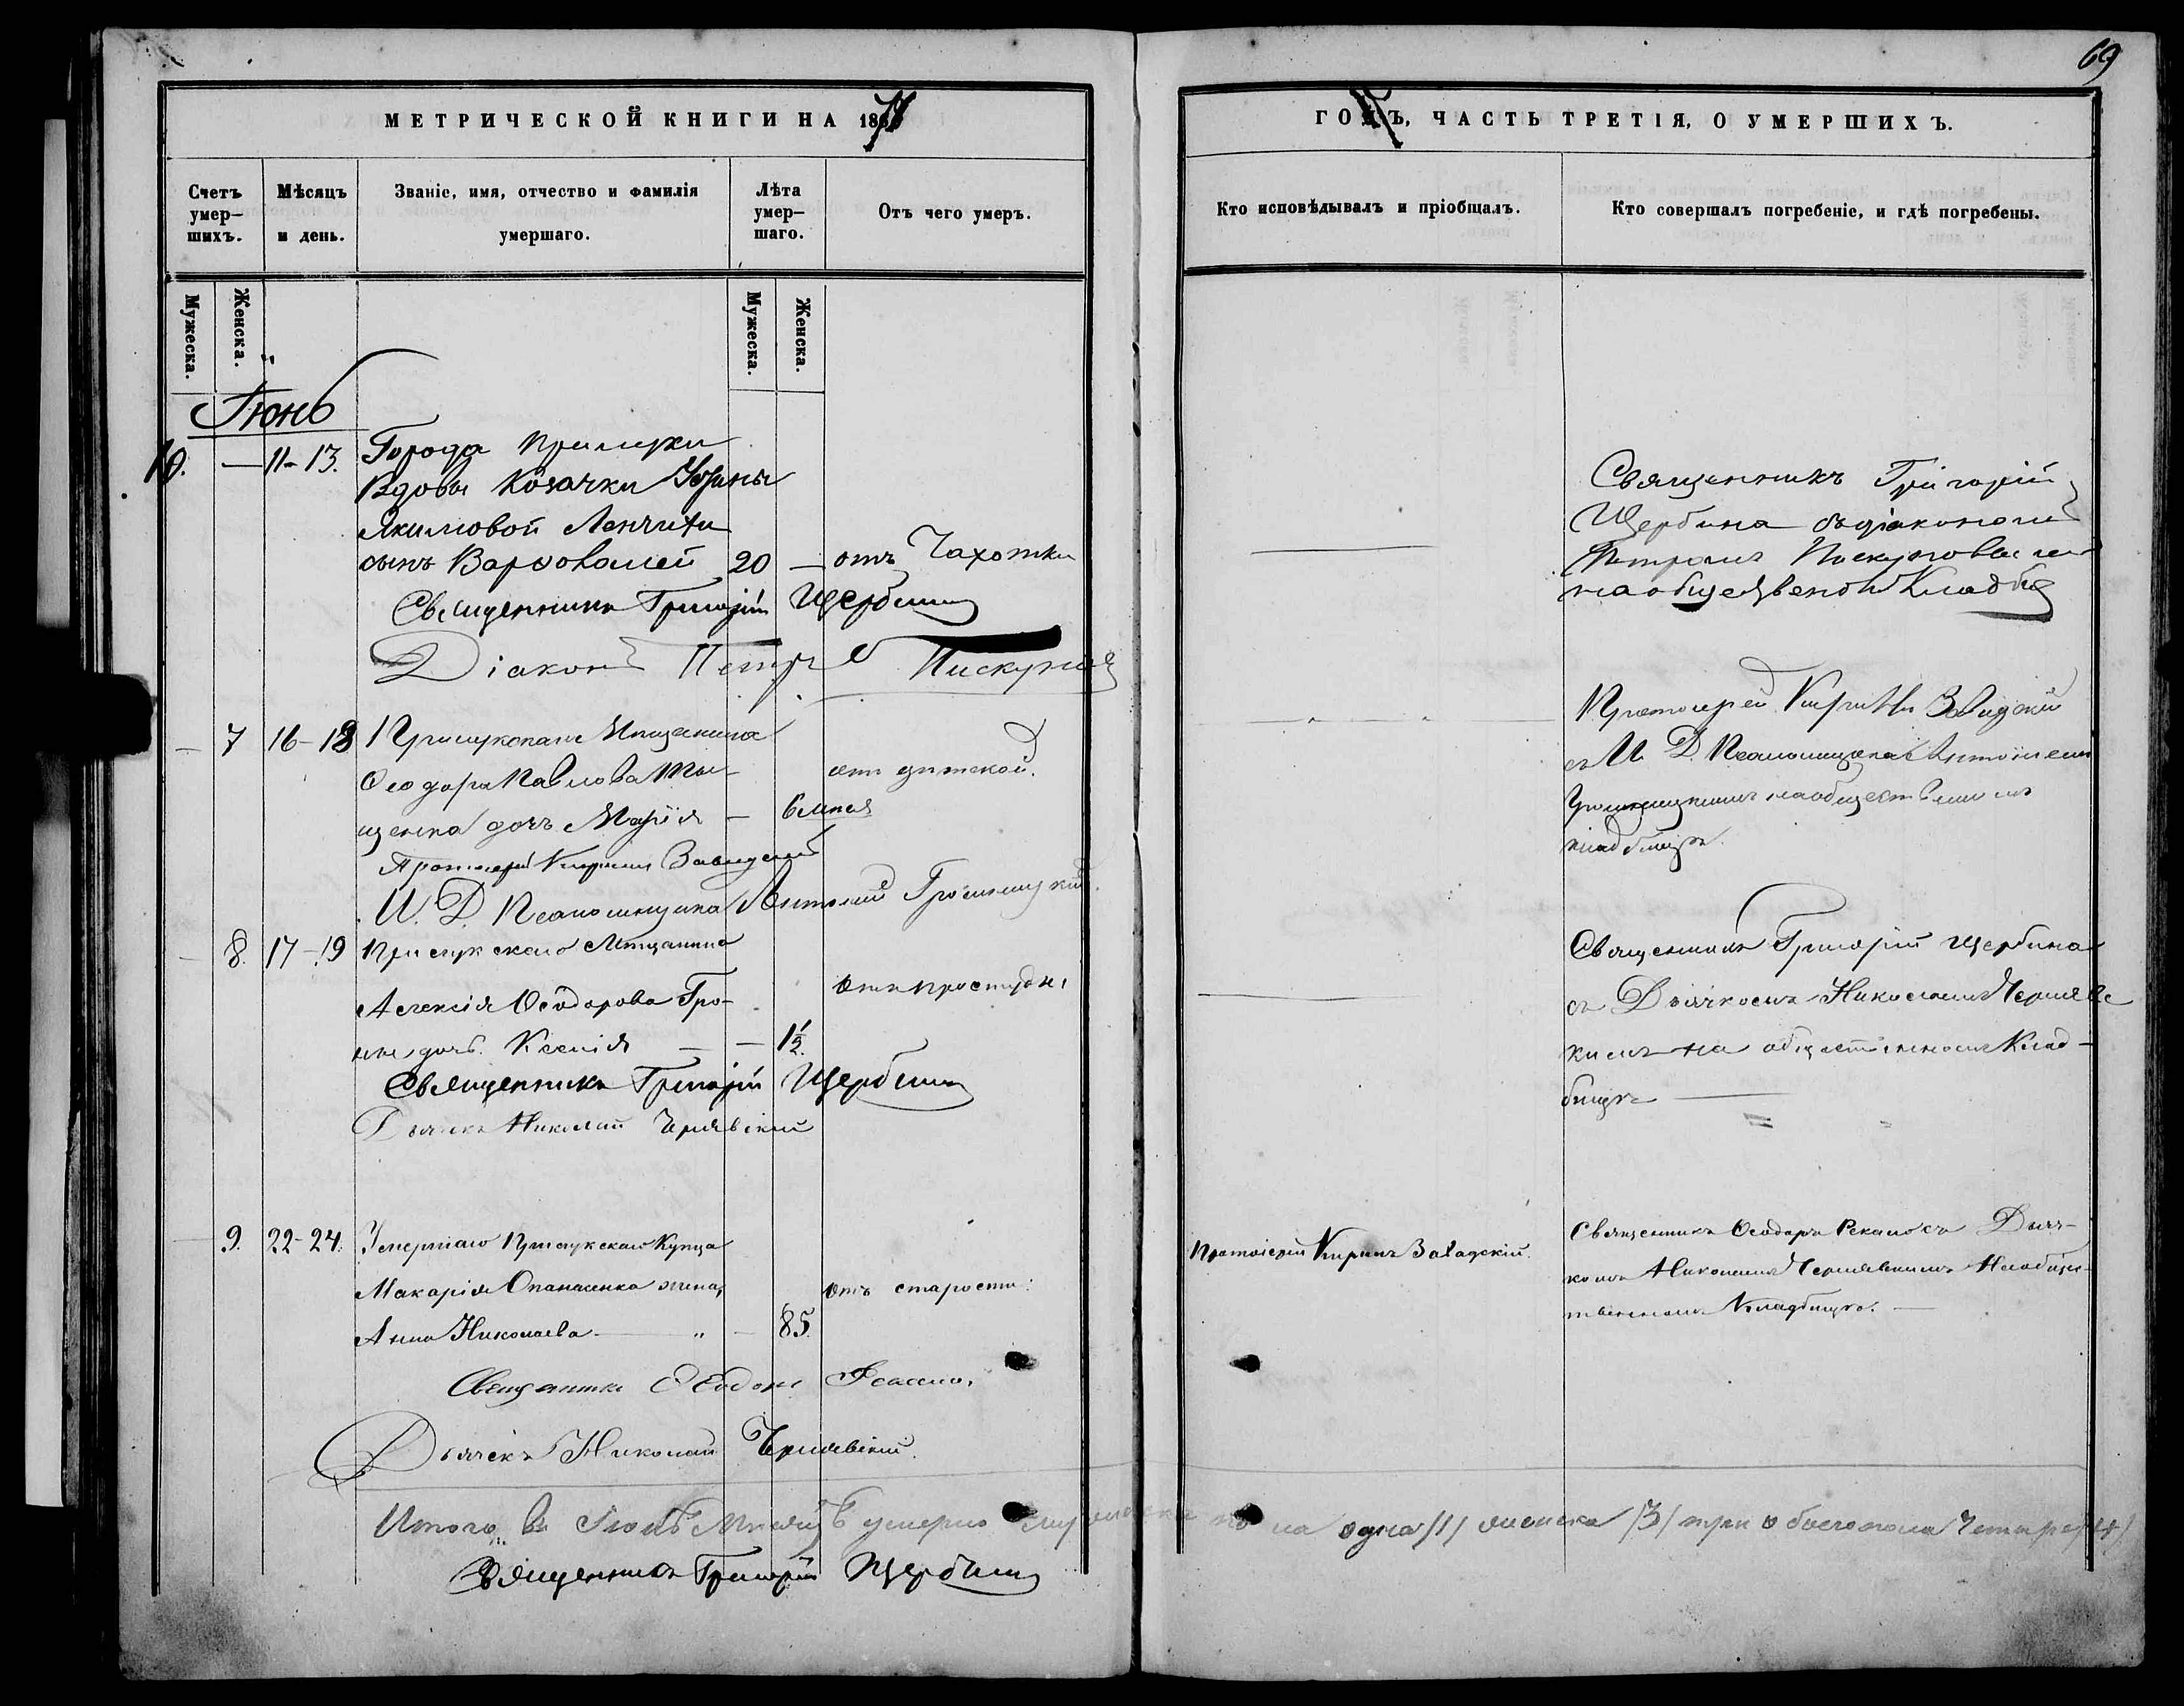 69
МЕТРИЧЕСКОЙ КНИГИ НА 18
ГОДЪ, ЧАСТЬ ТРЕТІЯ, О УМЕРШИХЪ.
Счетъ умер-шихъ.
Мѣсяцъ и день.
Званіе, имя, отчество и фамилія умершаго.
Лѣта умер-шаго.
Отъ чего умеръ.
Кто исповѣдывалъ и пріобщалъ.
Кто совершалъ погребеніе, и гдѣ погребены.
Мужеска.
Женска.
Мужеска.
Женска.
Іюнь
10. — 11-13. Города Прилуки
Вдовы Козачки
Якимовой
сынъ Варфоломей 20 — отъ Чахотки
Священникъ Григорій Щербина
Діаконъ Петръ Пискуновъ
Священникъ Григорій
Щербина съ діакономъ
Петромъ
на обществено Кладби
— 7 16-18 Прилукскаго Мѣщанина
Ѳеодора Павлова
щенка дочь Марія — 6 мѣся
отъ дѣтской.
Протоіерей Кириллъ Завадскій
И. Д. Псаломщика Антоній
Протоіерей Кириллъ Завадскій
съ И. Д. Псаломщика Антоніемъ
на общественномъ
кладбищѣ.
— 8. 17-19 Прилукскаго Мѣщанина
Алексія Ѳеодорова Гро-
дочь Ксенія — — 1½
отъ простуды
Священникъ Григорій Щербина
Дьячекъ Николай Чернявскій
Священникъ Григорій Щербина
съ Дьячкомъ Николаемъ Чернявс
кимъ на общественномъ Клад-
бищѣ
— 9. 22-24. Умершаго Прилукскаго Купца
Макарія Опанасенка жена,
Анна Николаева — „ — 85.
отъ старости:
Священникъ Ѳеодоръ
Дьячекъ Николай Чернявскій
Протоіерей Кириллъ Завадскій.
Священникъ Ѳеодоръ съ Дьяч-
комъ Николаемъ Чернявскимъ На общес-
твенномъ Кладбищѣ.
Итого въ Іюнѣ Мѣсяцѣ умерло мужеска пола одна /1/ женска /3/ три обоего пола Четыре /4/
Священникъ Григорій Щербина